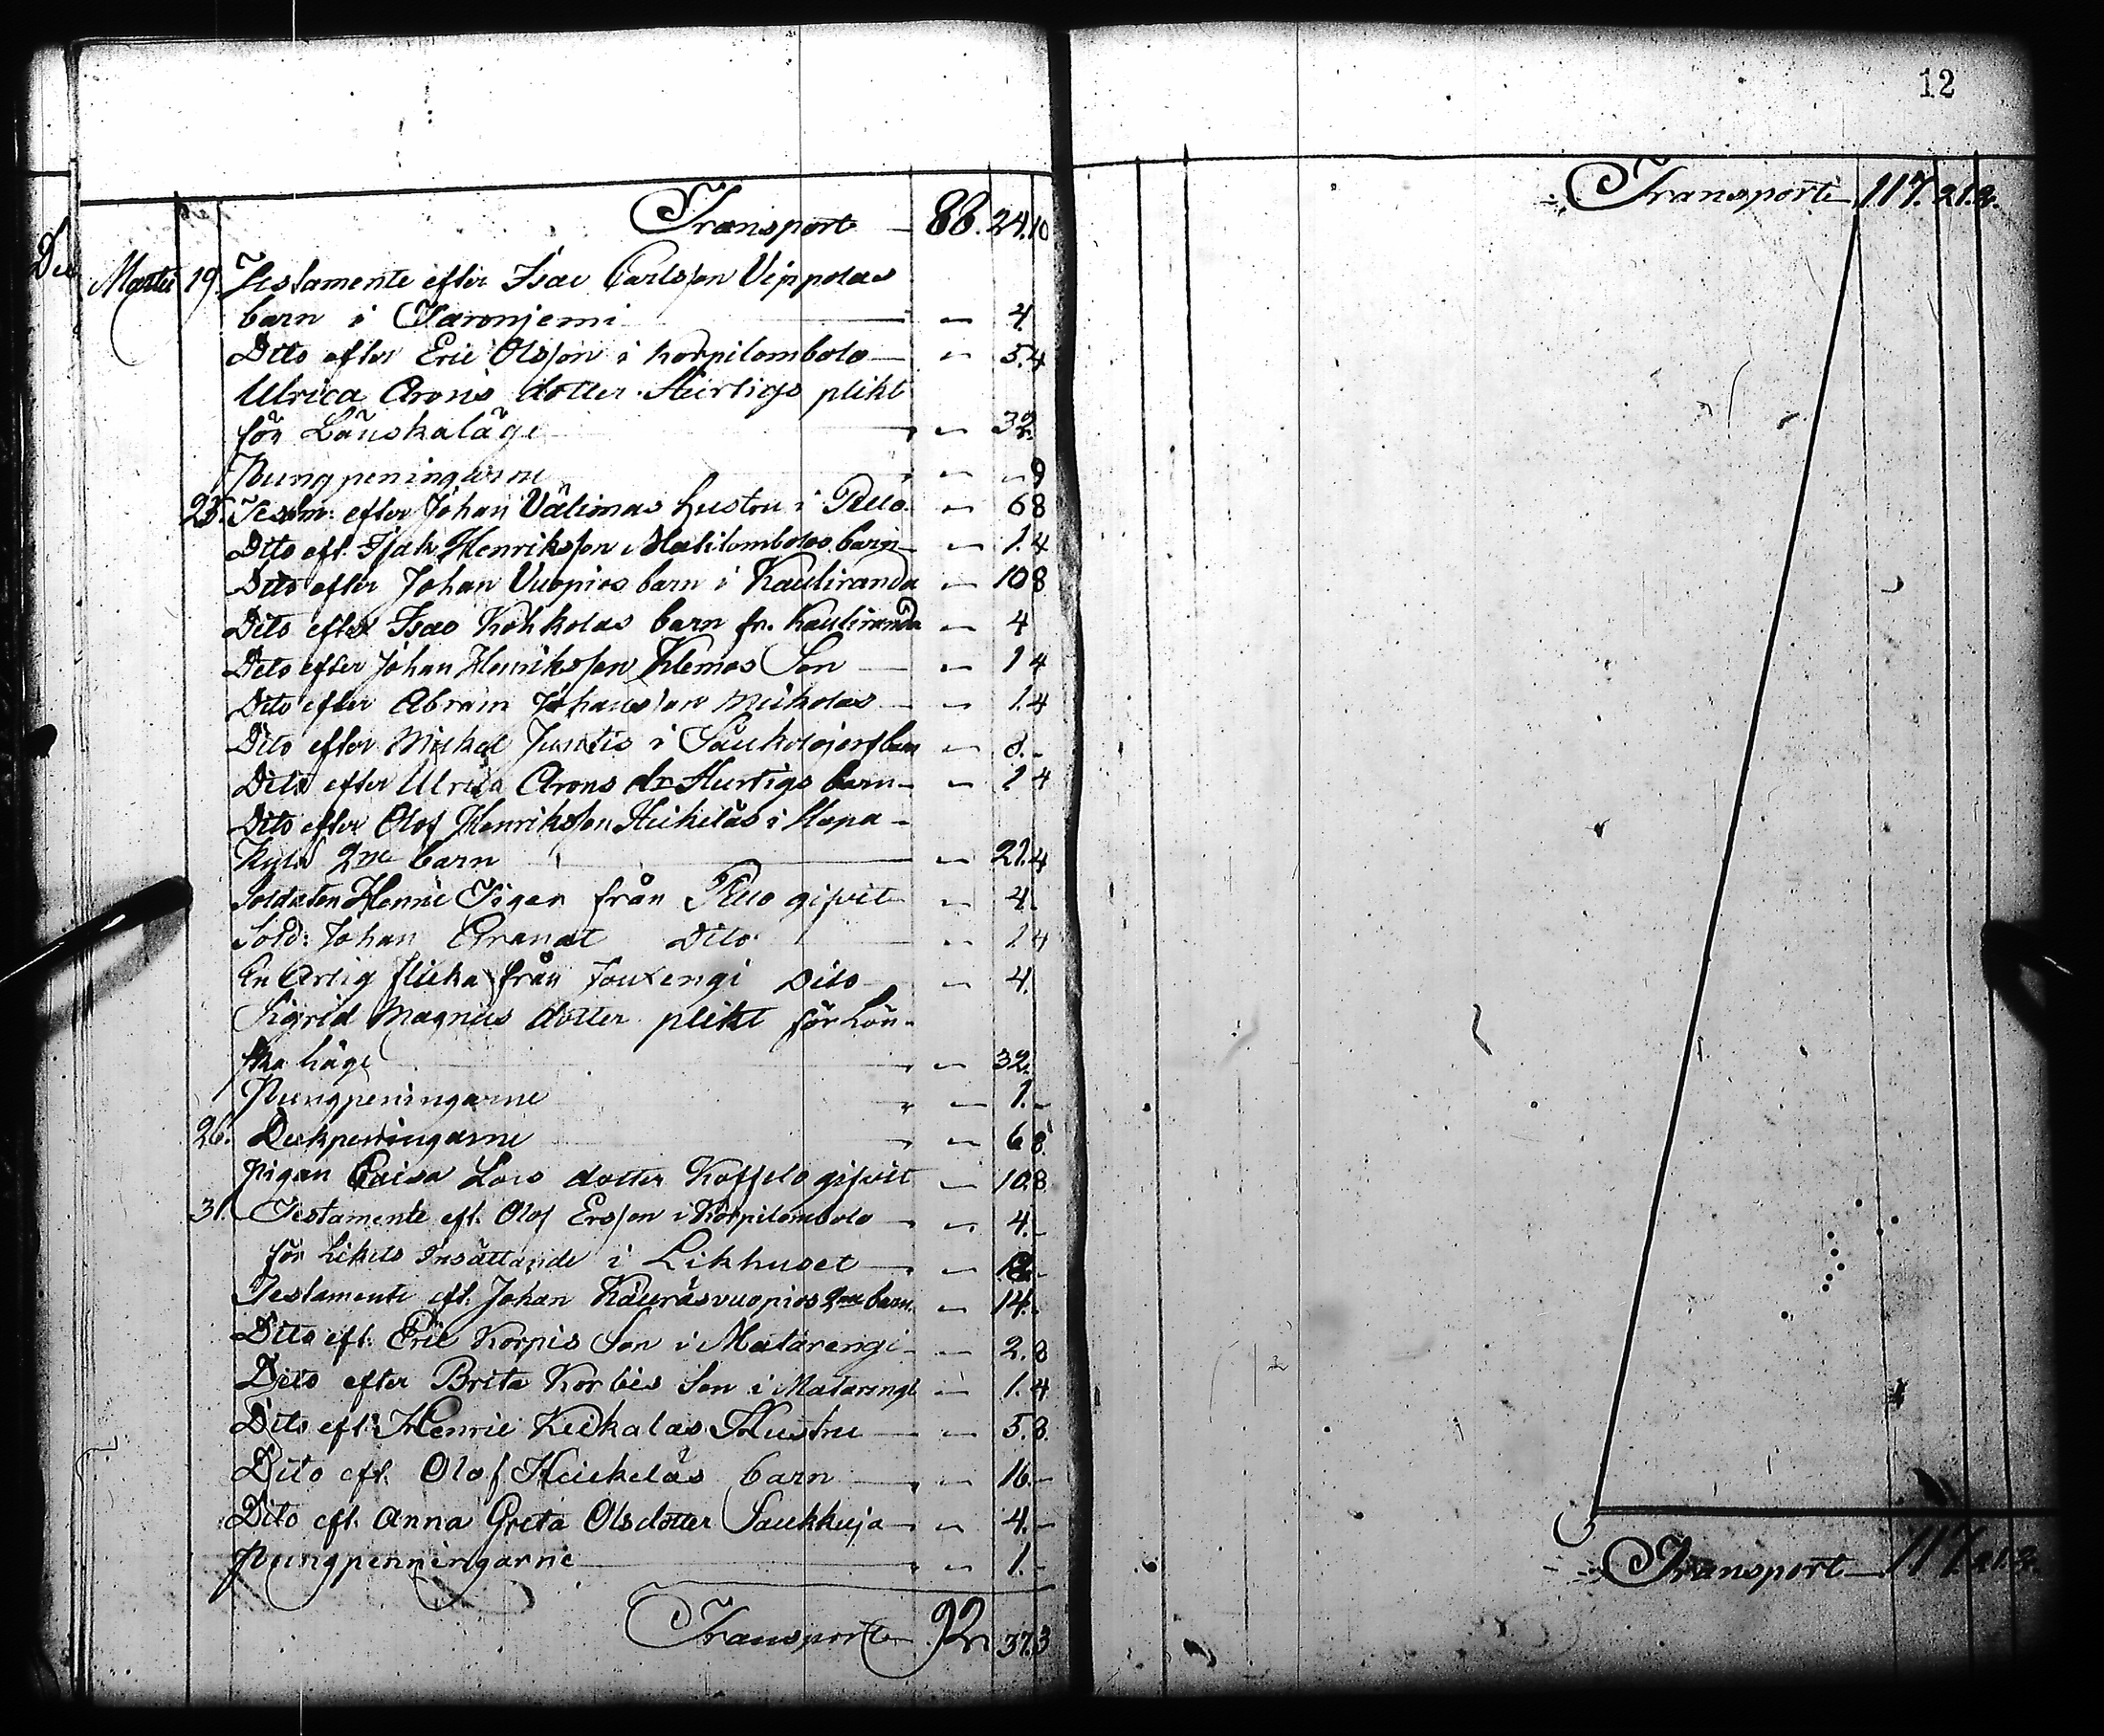 Transport 88. 24. 10
Martii 19. Testamente efter Isac Carlsson Vippolas
barn i Turonjemi — 4.
Dito efter Eric Olsson i Korpilombolo — 5. 4
Ulrica Arons dotter Hurtigs plikt
för Länskaläge — 32.
Pungpeningarne — 9
25. Testm: efter Johan Välimas hustru i Pello — 6 8
Dito eft. Isak Henriksson Matilombolos barn — 1. 4
Dito efter Johan Vuopios barn i Kauliranda — 10 8
Dito efter Isac Kohkolas barn fr. Kauliranda — 4
Dito efter Johan Henriksson Klemos Son — 1 4
Dito efter Abram Johansson Mukolas — 1. 4
Dito efter Mickel Juntis i barn — 8. -
Dito efter Ulrica Arons dr Hurtigs barn — 1 4
Dito efter Olof Henriksson Heikeläs i Kopa-
kylä 2ne barn — 21. 4
Soldaten Henric Tiger från Pello gifvit — 4.
Sold: Johan Granat Dito — 1 4
En Ärlig flicka från Jouxengi Dito — 4.
Sigrid Magnus dotter plikt för Lön-
ska läge — 32.
Pungpeningarne — 1. -
26. Deckpeningarne — 6 8
Pigan Caisa Lars dotter Koffelo gifvit — 10. 8
31. Testamente eft. Olof Ersson i Korpilombolo — 4. -
för Likets Insättande i Likhuset — 12. -
Testamente eft. Johan Käuräsvuopios 2ne barn — 14. -
Dito eft. Eric Korpis Son i Matarengi — 2. 8
Dito efter Brita Korbis Son i Matarengi — 1. 4
Dito eft. Henric Keikalas Hustru — 5. 8.
Dito eft. Olof Heikeläs barn — 16. -
Dito eft. Anna Greta Olsdotter Saukkuja — 4. -
Pungpenningarne — 1. -
Transport 92. 37. 3
12
Transport 117. 21. 2.
Transport 117. 21. 2.